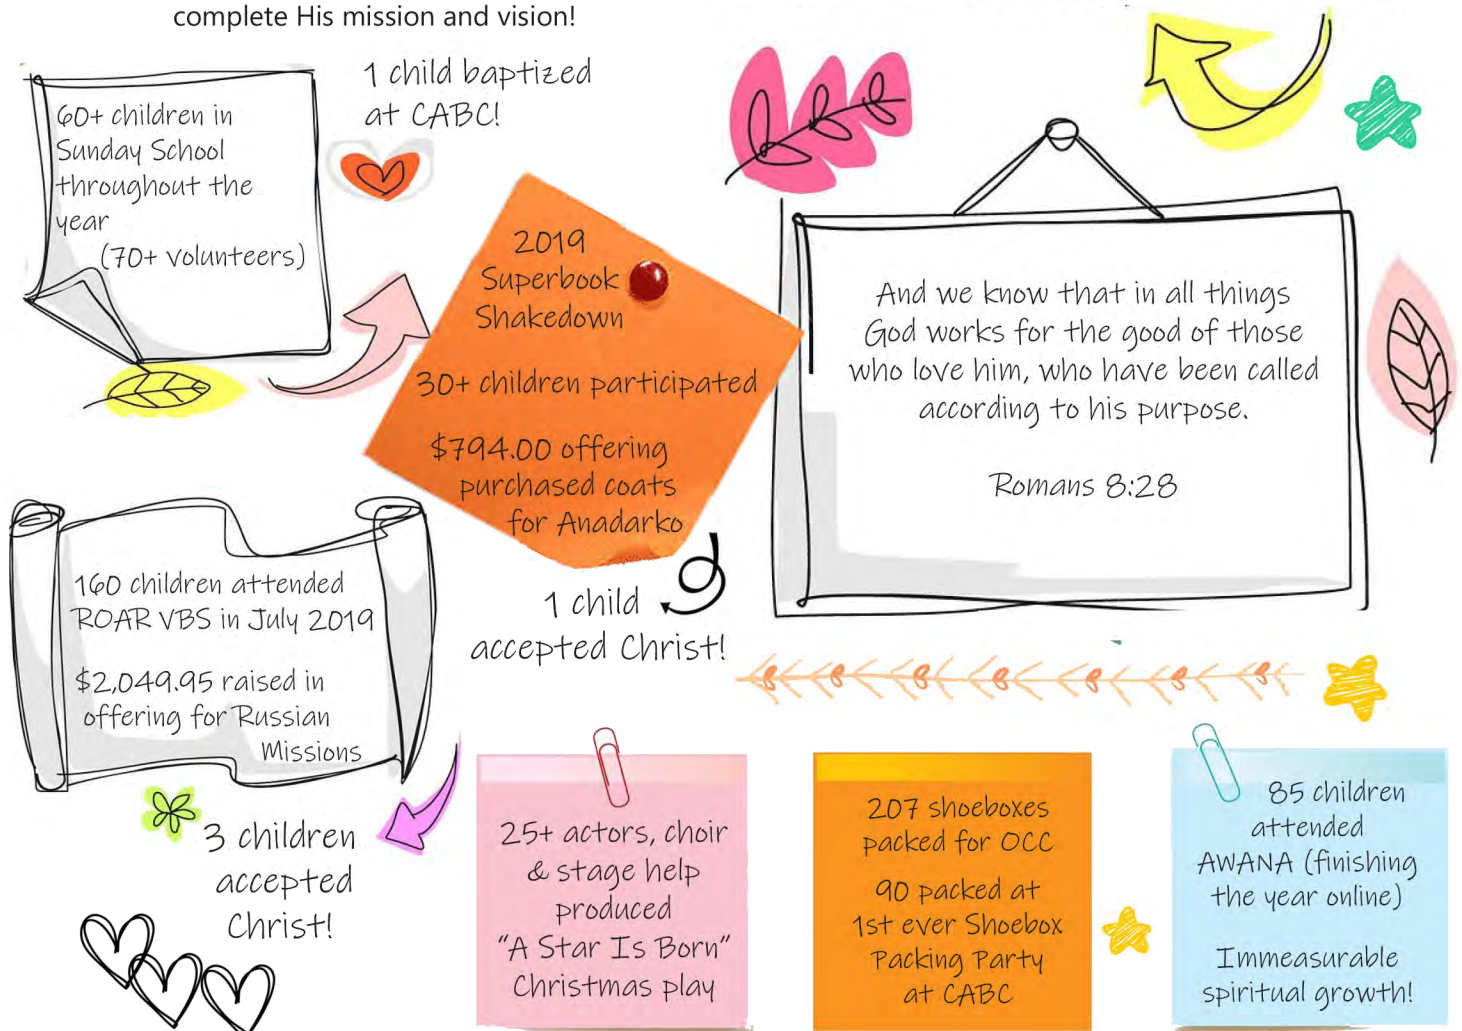 complete His mission and vision!
1 child baptized
at CABC!
60+ children in
Sunday School
throughout the
year
(70+ volunteers)
2019
Superbook
Shakedown
30+ children participated
$794.00 offering
purchased coats
for Anadarko
1 child
accepted Christ!
And we know that in all things
God works for the good of those
who love him, who have been called
according to his purpose.
Romans 8:28
160 children attended
ROAR VBS in July 2019
$2,049.95 raised in
offering for Russian
Missions
3 children
accepted
Christ!
25+ actors, choir
& stage help
produced
"A Star Is Born"
Christmas play
207 shoeboxes
packed for OCC
90 packed at
1st ever Shoebox
Packing Party
at CABC
85 children
attended
AWANA (finishing
the year online)
Immeasurable
spiritual growth!